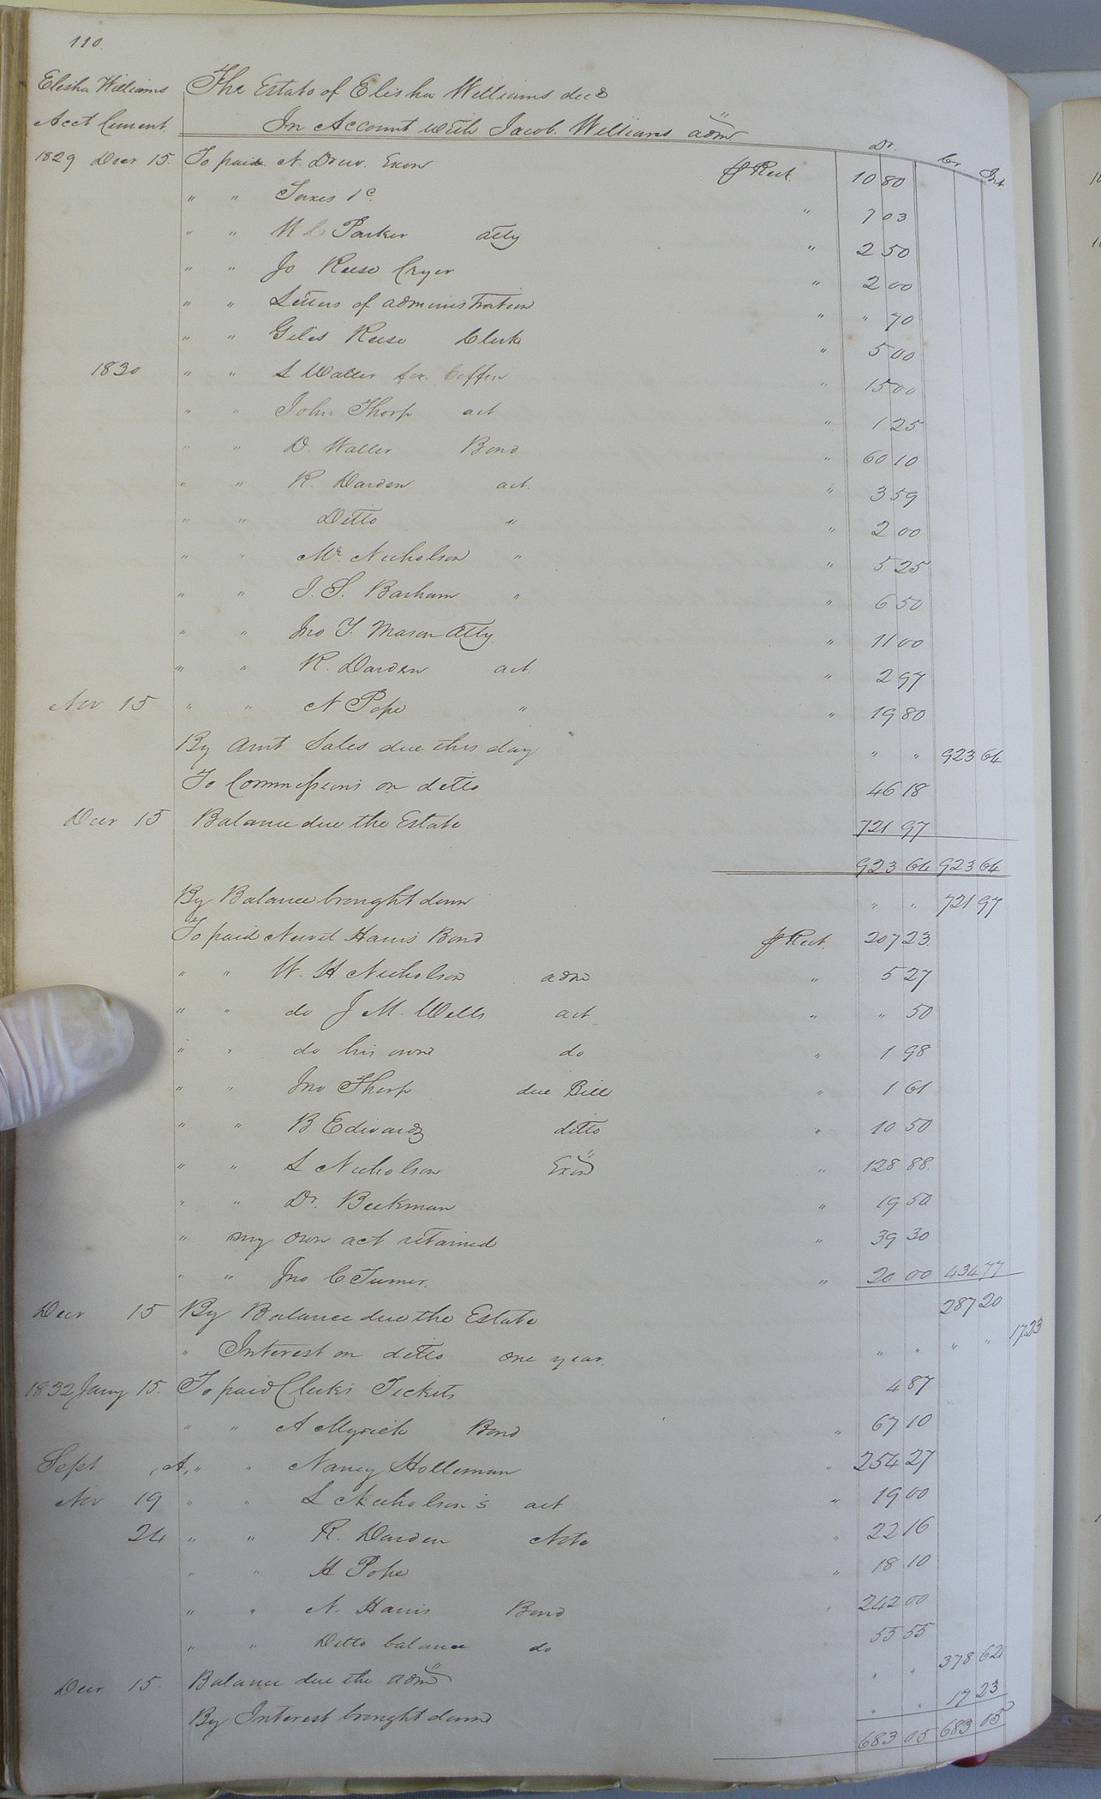 110.
Elisha Williams The Estate of Elisha Williams decd
Acct Current In Account with Jacob Williams admr Dr. Cr Int
1829 Decr 15. To paid N. Drew. Exon pr Rect. 10 80
" " Taxes &c. " 7 03
" " Parker atty " 2 50
" " Jo Reese Cryer " 2 00
" " Letters of administration " " 70
" " Geles Reese Clerk " 5 00
1830 " " L Waller for Coffin " 15 00
" " John Thorp act " 1 25
" " D. Waller Bond " 60 10
" " R. Darden act. " 3 59
" " Ditto " " 2 00
" " Mr. Nicholson " " 5 25
" " J. S. Barham " " 6 50
" " Jno Y. Mason atty " 11 00
" " R. Darden act. " 2 97
Nov 15 " " N Pope " " 19 80
By amt Sales due this day " " 923 64
To Commissions on ditto 46 18
Decr 15 Balance due the Estate 721 97
923 64 923 64
By Balance brought down " " 721 97
To paid Newit Harris Bond pr Rect. 207 23
" " W. H Nicholson adm " 5 27
" " do J M. Wells act. " " 50
" " do his own do " 1 98
" " Jno Thorp due Bill " 1 61
" " B Edwards ditto " 10 50
" " L Nicholson Exon " 128 88
" " Dr. Beekman " 19 50
" my own act retained " 39 30
" " Jno C Turner. " 20 00 434 77
Decr 15 By Balance due the Estate 287 20
" Interest on ditto one year. " " " " 17 23
1832 Jany 15. To paid Clerks Tickets 4 87
" " A Myrick Bond " 67 10
Sept " " Nancy Holleman " 254 27
Nov 19 " " L Nicholson's act " 19 00
24 " " R. Darden Note " 22 16
" " H Pope " 18 10
" " N. Harris Bond " 242 00
" " Ditto balance do 55 55
Decr 15. Balance due the adm " " 378 62
By Interest brought down " " 17 23
683 05 683 05